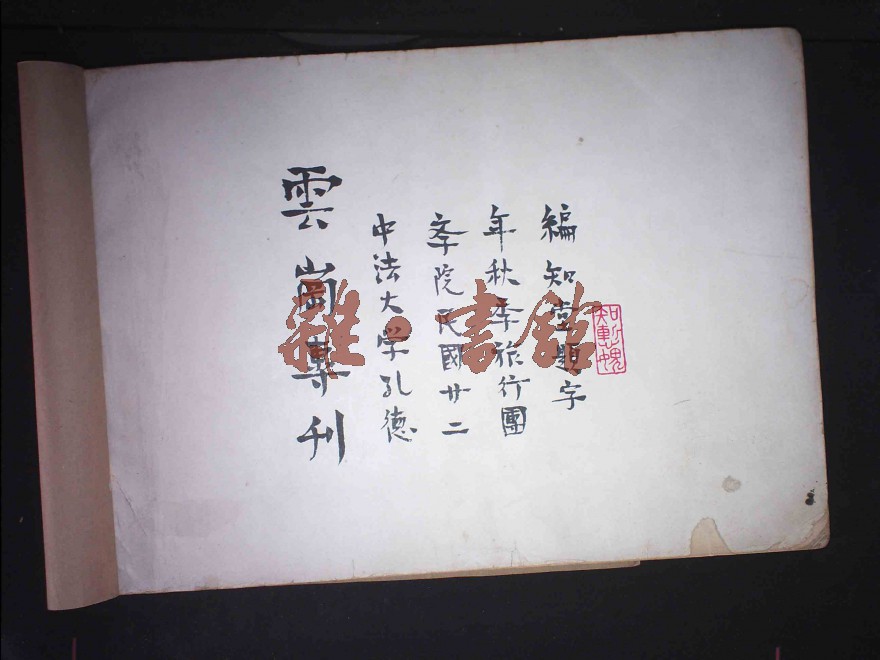 雲崗專刊
中法大学孔德
斈院民國廿二
年秋季旅行團
編 知堂題字
雜·書館